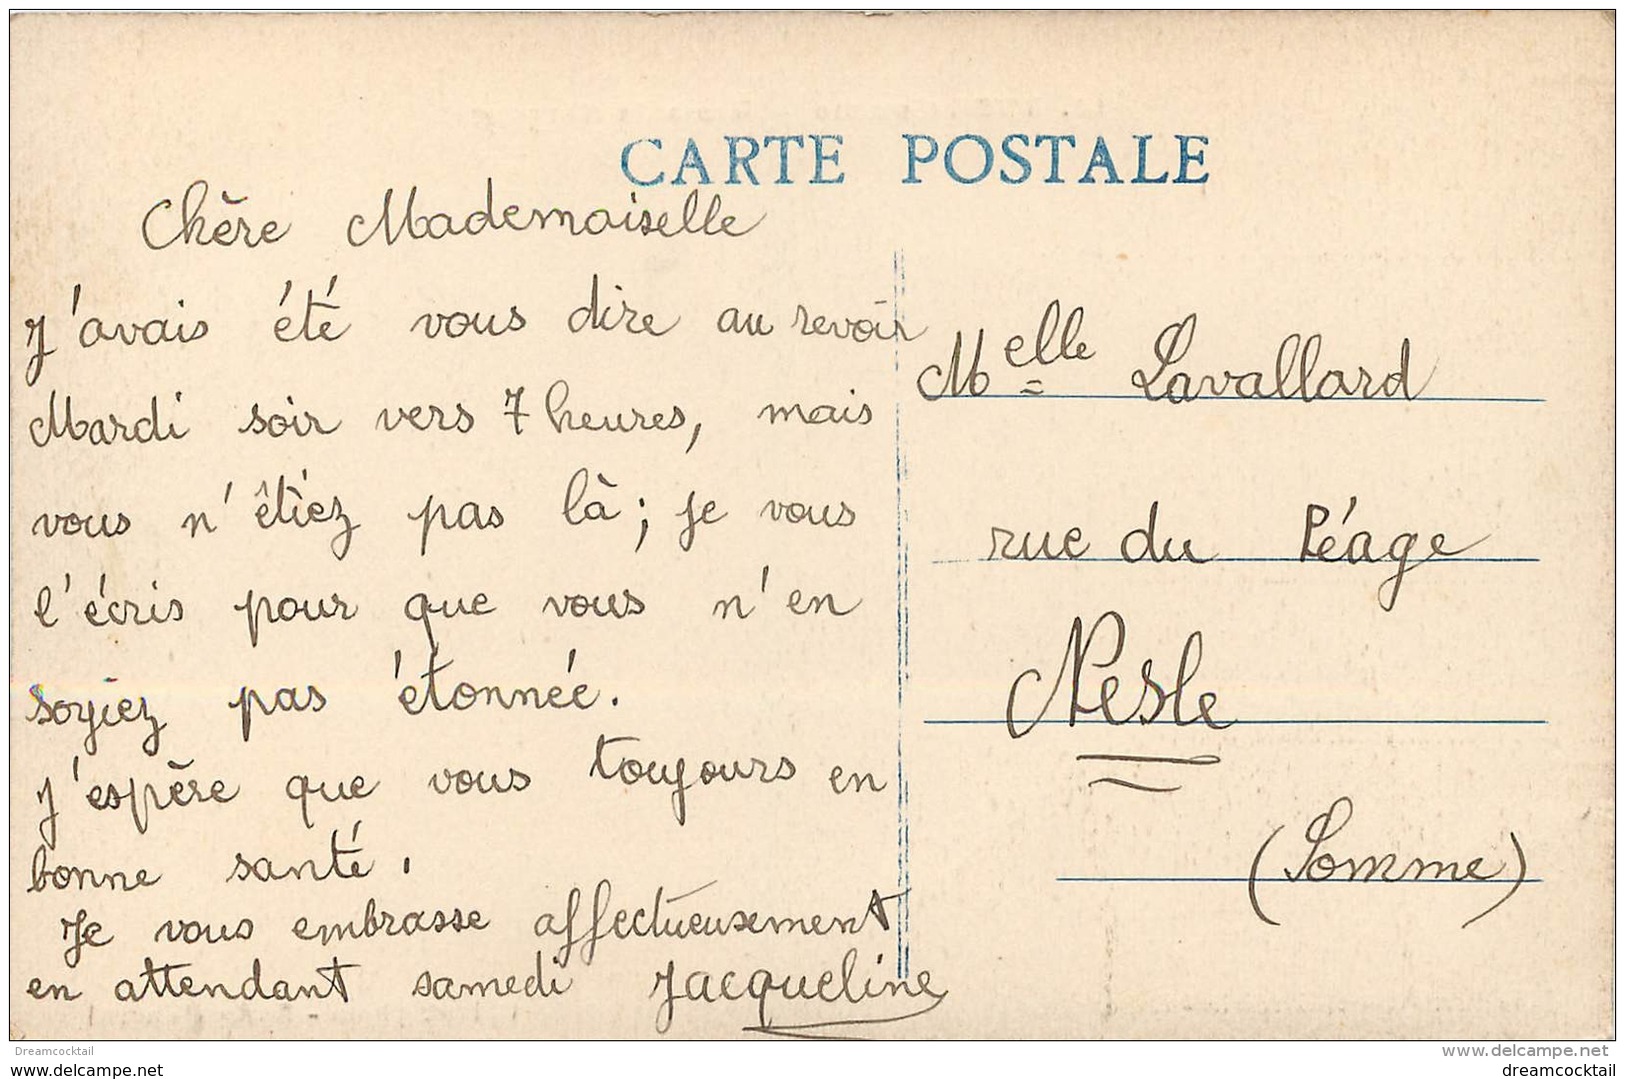 CARTE POSTALE
Chère Mademoiselle
J'avais été vous dire au revoir
Mardi soir vers 7 heures, mais
vous n'êtiez pas là ; je vous
l'écris pour que vous n'en
soyiez pas étonnée.
J'espère que vous toujours en
bonne santé.
Je vous embrasse affectueusement
en attendant samedi Jacqueline
Melle Lavallard
rue du Péage
Nesle
(Somme)
Dreamcocktail
www.delcampe.net
www.delcampe.net
dreamcocktail